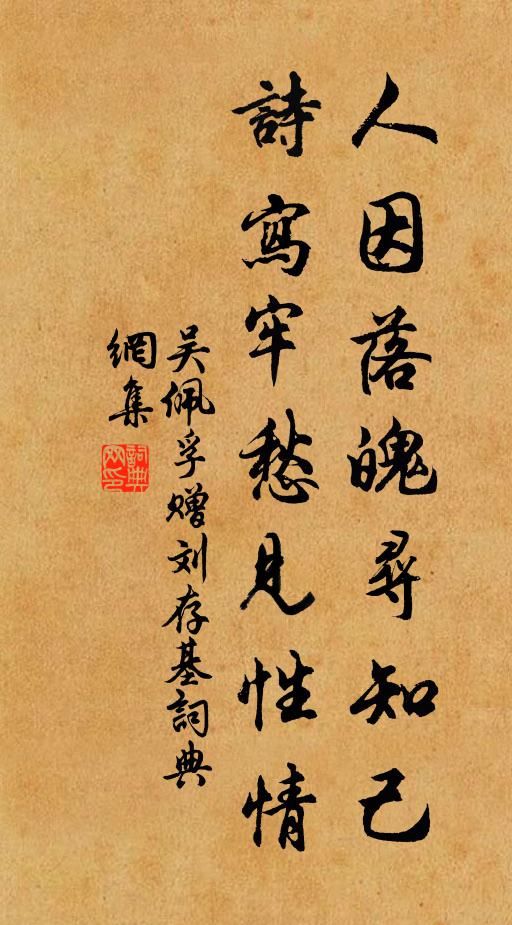 人因落魄尋知己
詩寫牢愁見性情
吴佩孚赠刘存基詞典
網集
詞典網印